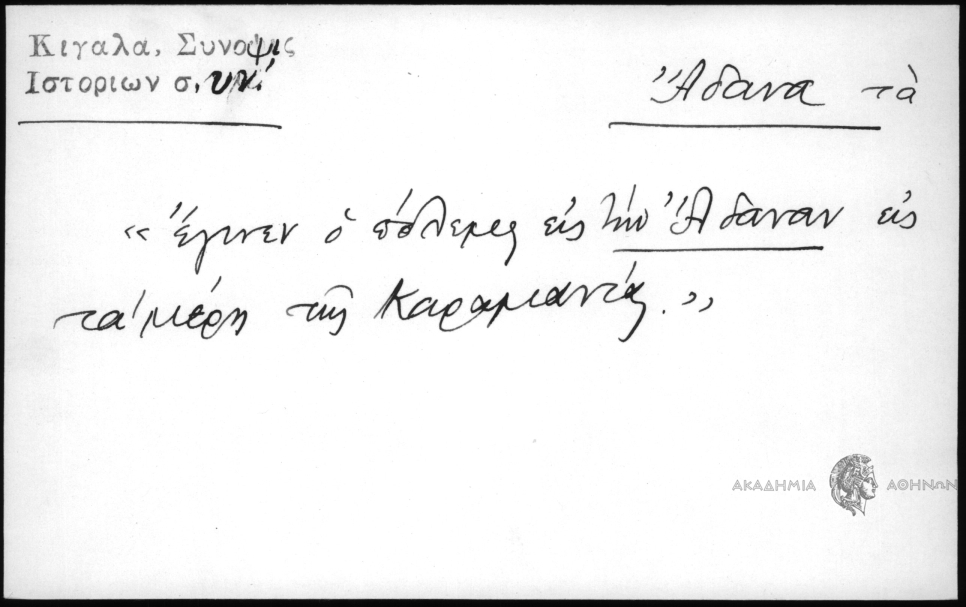 Κιγαλα, Συνοψις
Ιστοριων σ. υν!
Ἄδανα τὰ
« Ἔγινεν ὁ πόλεμος εἰς τὴν Ἄδαναν εἰς
τὰ μέρη τῆς Καραμανίας. »
ΑΚΑΔΗΜΙΑ ΑΘΗΝΩΝ